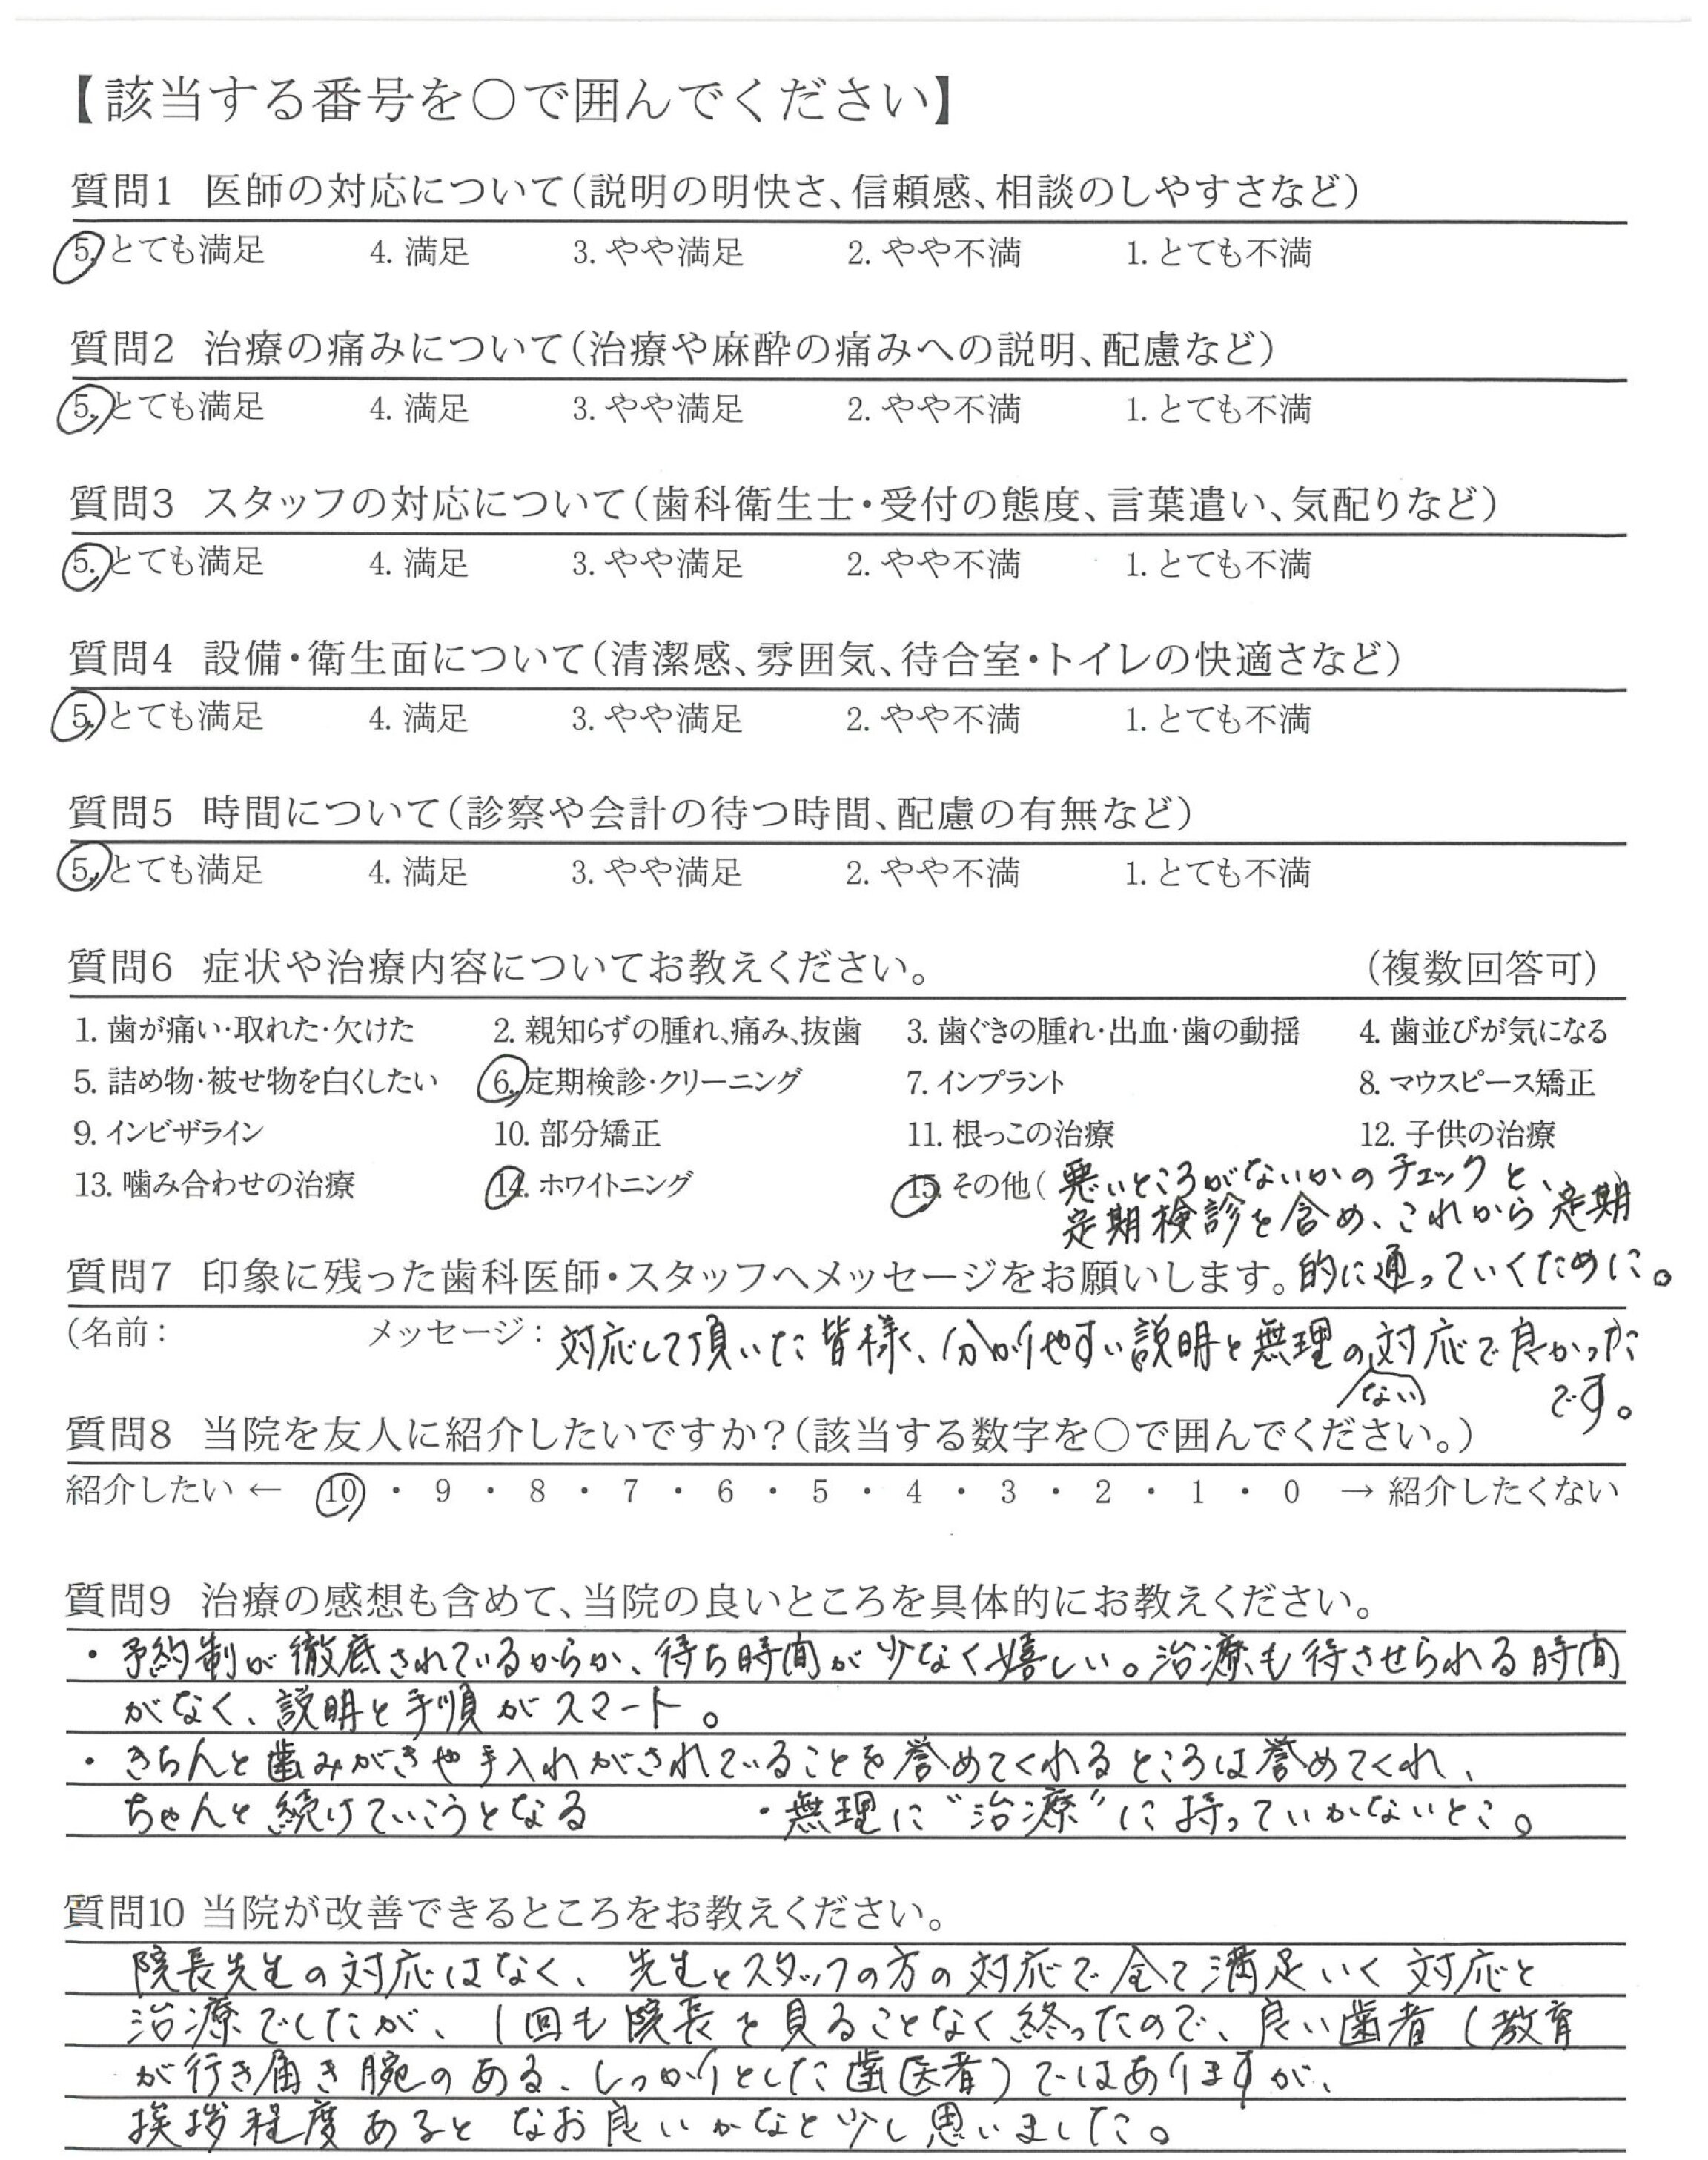 【該当する番号を〇で囲んでください】
質問1 医師の対応について(説明の明快さ、信頼感、相談のしやすさなど)
5. とても満足 4. 満足 3. やや満足 2. やや不満 1. とても不満
質問2 治療の痛みについて(治療や麻酔の痛みへの説明、配慮など)
5. とても満足 4. 満足 3. やや満足 2. やや不満 1. とても不満
質問3 スタッフの対応について(歯科衛生士・受付の態度、言葉遣い、気配りなど)
5. とても満足 4. 満足 3. やや満足 2. やや不満 1. とても不満
質問4 設備・衛生面について(清潔感、雰囲気、待合室・トイレの快適さなど)
5. とても満足 4. 満足 3. やや満足 2. やや不満 1. とても不満
質問5 時間について(診察や会計の待つ時間、配慮の有無など)
5. とても満足 4. 満足 3. やや満足 2. やや不満 1. とても不満
質問6 症状や治療内容についてお教えください。 (複数回答可)
1. 歯が痛い・取れた・欠けた 2. 親知らずの腫れ、痛み、抜歯 3. 歯ぐきの腫れ・出血・歯の動揺 4. 歯並びが気になる
5. 詰め物・被せ物を白くしたい 6. 定期検診・クリーニング 7. インプラント 8. マウスピース矯正
9. インビザライン 10. 部分矯正 11. 根っこの治療 12. 子供の治療
13. 噛み合わせの治療 14. ホワイトニング 15. その他( 悪いところがないかのチェックと、
定期検診を含め、これから定期)
質問7 印象に残った歯科医師・スタッフへメッセージをお願いします。 的に通っていくために。
(名前: メッセージ: 対応して頂いた皆様、分かりやすい説明と無理の対応で良かった
ない です。
質問8 当院を友人に紹介したいですか?(該当する数字を〇で囲んでください。)
紹介したい ← 10 ・ 9 ・ 8 ・ 7 ・ 6 ・ 5 ・ 4 ・ 3 ・ 2 ・ 1 ・ 0 → 紹介したくない
質問9 治療の感想も含めて、当院の良いところを具体的にお教えください。
・予約制が徹底されているからか、待ち時間が少なく嬉しい。治療も待させられる時間
がなく、説明と手順がスマート。
・きちんと歯みがきや手入れがされていることを誉めてくれるところは誉めてくれ、
ちゃんと続けていこうとなる ・無理に"治療"に持っていかないとこ。
質問10 当院が改善できるところをお教えください。
院長先生の対応はなく、先生とスタッフの方の対応で全て満足いく対応と
治療でしたが、1回も院長を見ることなく終ったので、良い歯者(教育
が行き届き腕のある、しっかりとした歯医者)ではありますが、
挨拶程度あるとなお良いかなと少し思いました。